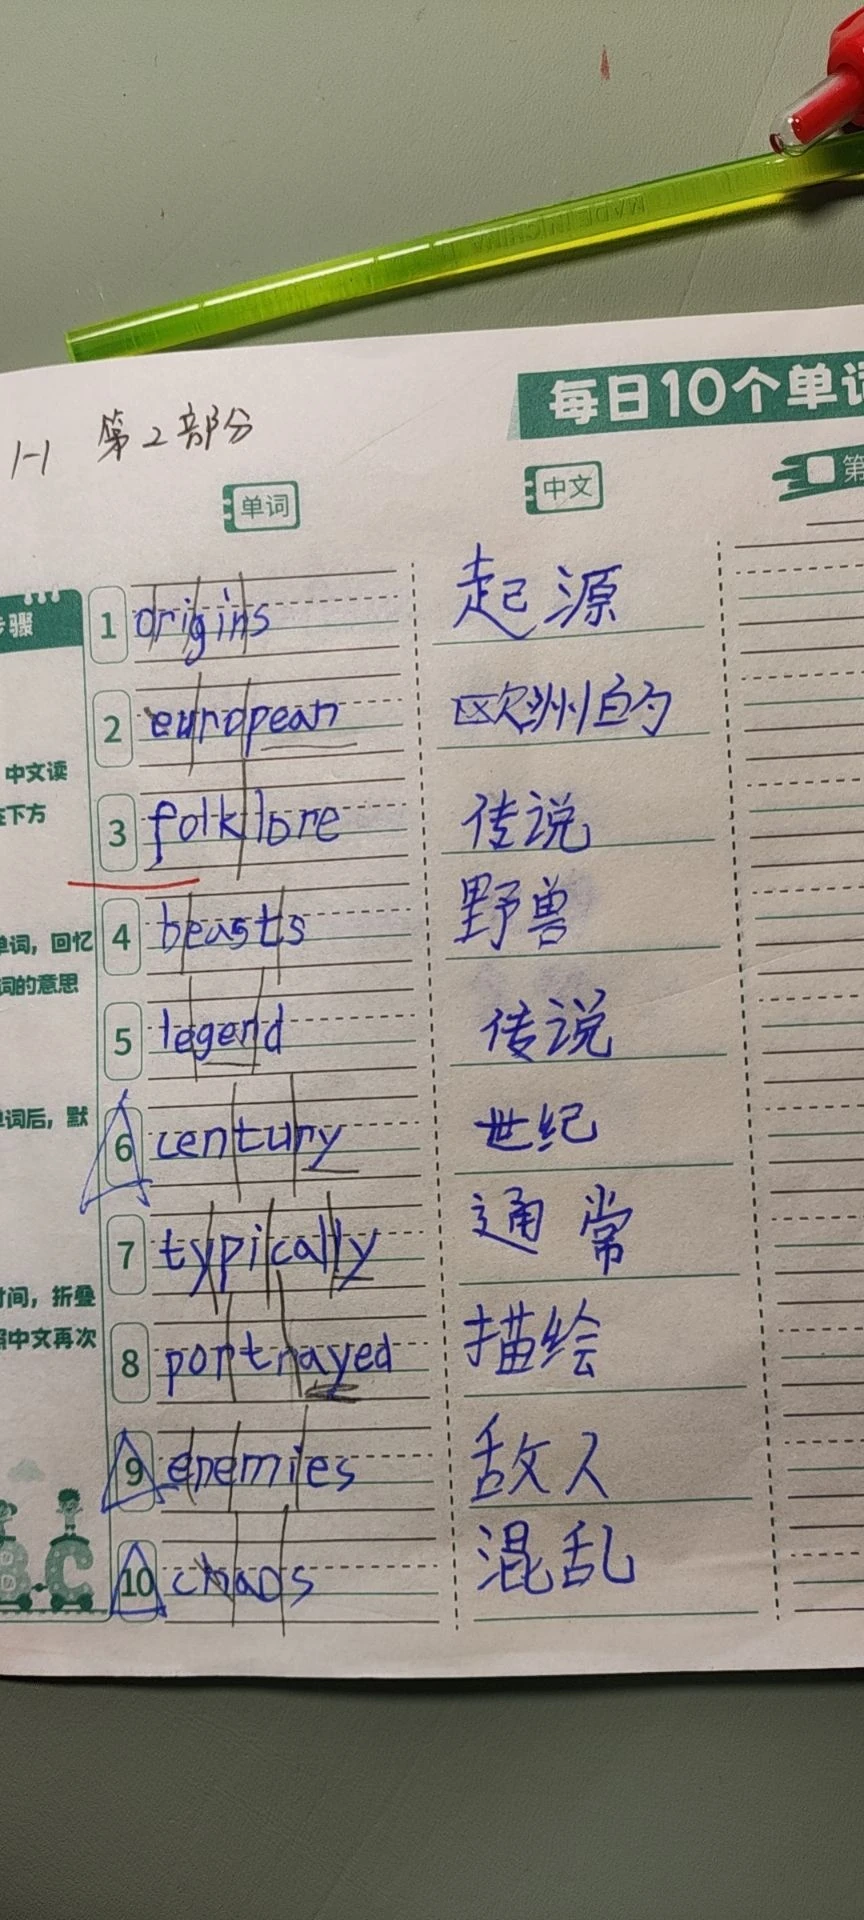 MADE IN CHINA
每日10个单词
1-1 第2部分
单词 中文 第
步骤
1 origins 起源
2 european 欧洲的
中文读
在下方
3 folklore 传说
4 beasts 野兽
单词，回忆
词的意思
5 legend 传说
单词后，默
6 century 世纪
7 typically 通常
时间，折叠
照中文再次
8 portrayed 描绘
9 enemies 敌人
10 chaos 混乱
B C